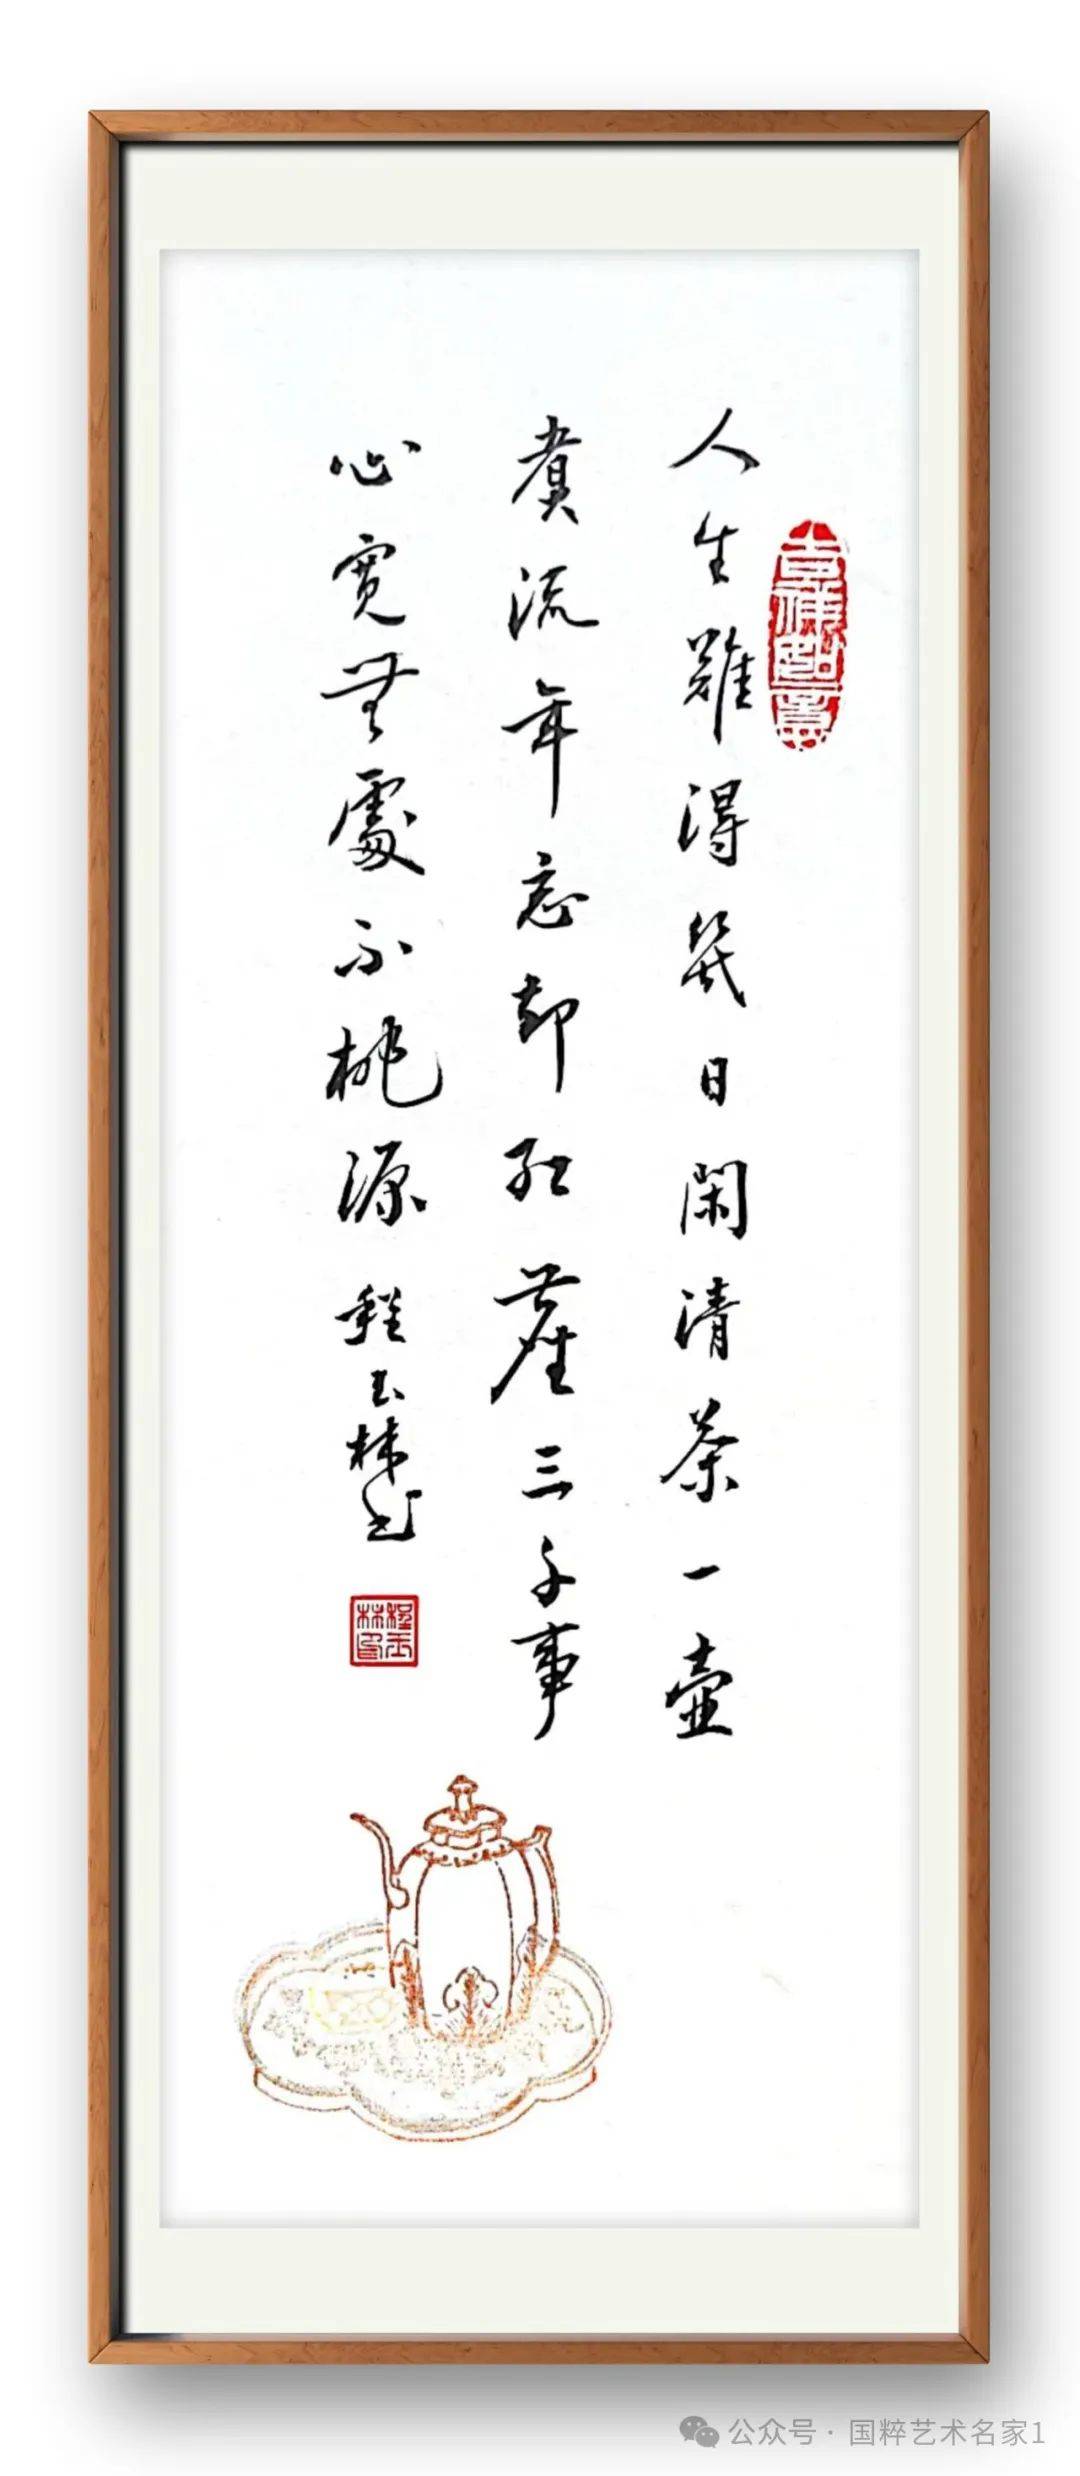 人生難得幾日閑清茶一壺
煮流年忘却紅塵三千事
心寬無處不桃源 程玉林書
吉祥如意
程玉林印
公众号 · 国粹艺术名家1